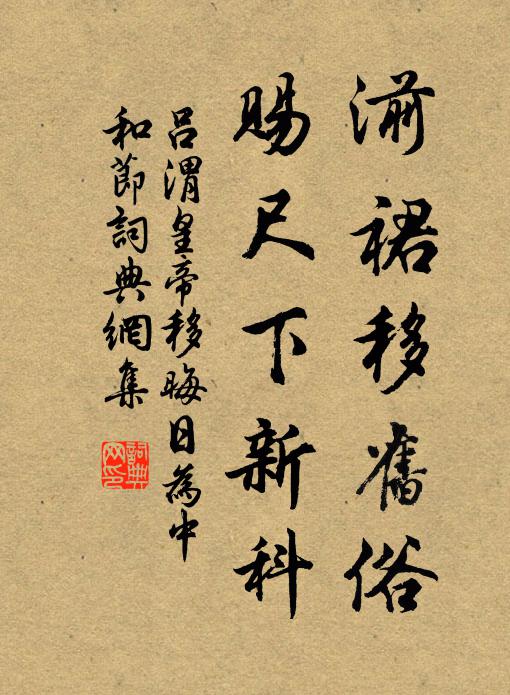 湔裙移舊俗
賜尺下新科
吕渭皇帝移晦日為中
和節詞典網集
詞典
网印